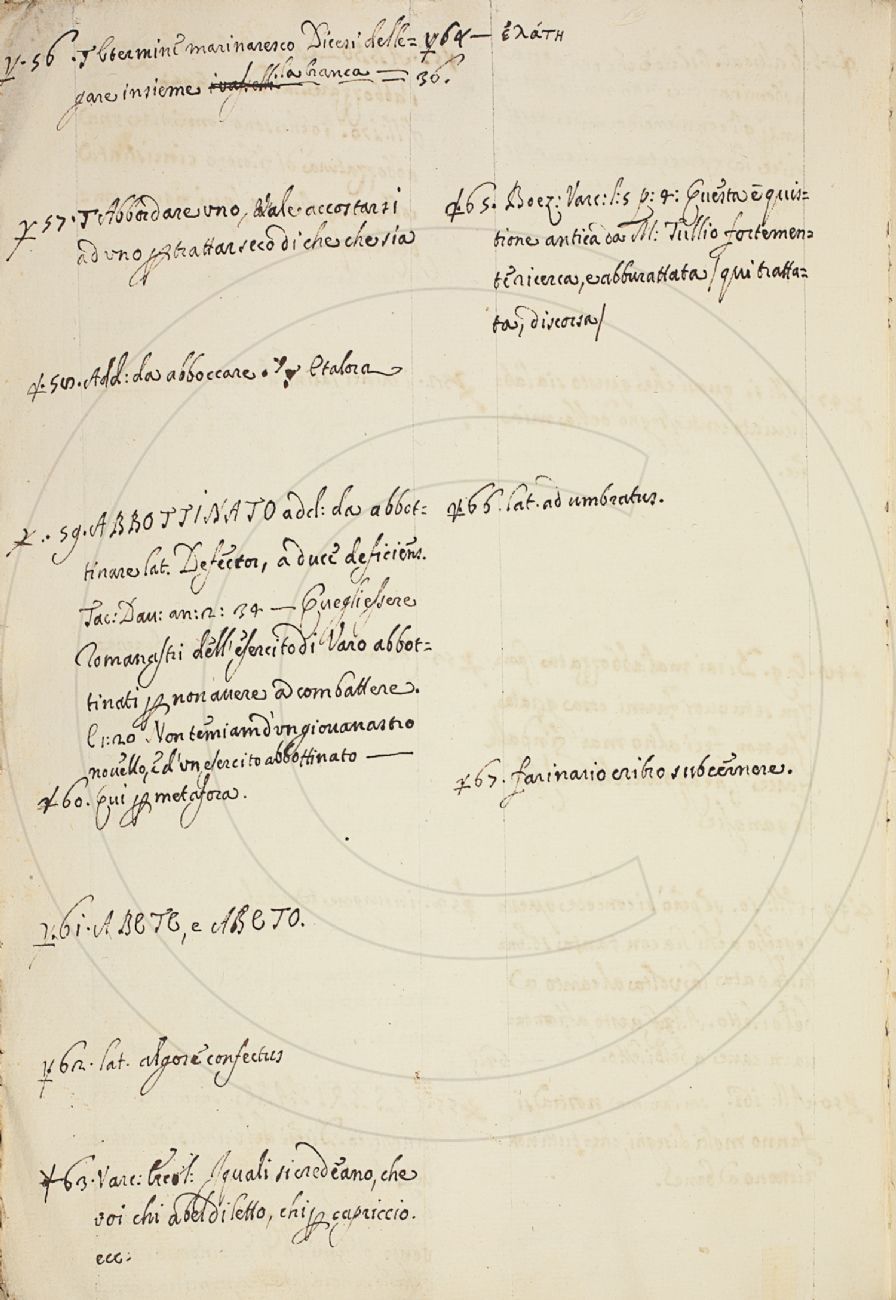 56. T È termine marinaresco Dicesi dello le=
gare insieme i vaselli. la branca — 36.
57. T Abbordare uno, Vale accostarsi
ad uno p trattar seco di che che sia
58. Add: da abboccare. E talora
59. ABBOTTINATO add: da abbot=
tinare lat. Defector, a duce deficiens.
Tac: Dav: an: 2: 34 — Quegli essere
Romanastri dell'esercito di Varo abbot=
tinati p non avere a combattere.
E 1: 20 Non temiam d'un giovanastro
novello, e d'un esercito abbottinato —
60. Qui p metafora.
61. ABETE, e ABETO.
62. lat. algore confectus
63. Varc: Ercol: I quali si credeano, che
voi chi a bel diletto, chi p capriccio.
ecc:
64 — ἐλάτη
65. Boez: Varc: l: 5 p: 4: Questa è quis=
tione antica da M: Tullio fortemen=
te ricerca, e abburattata / qui tratta=
ta, discorsa /
66. lat. adumbratus.
67. farinario cribro subcernere.